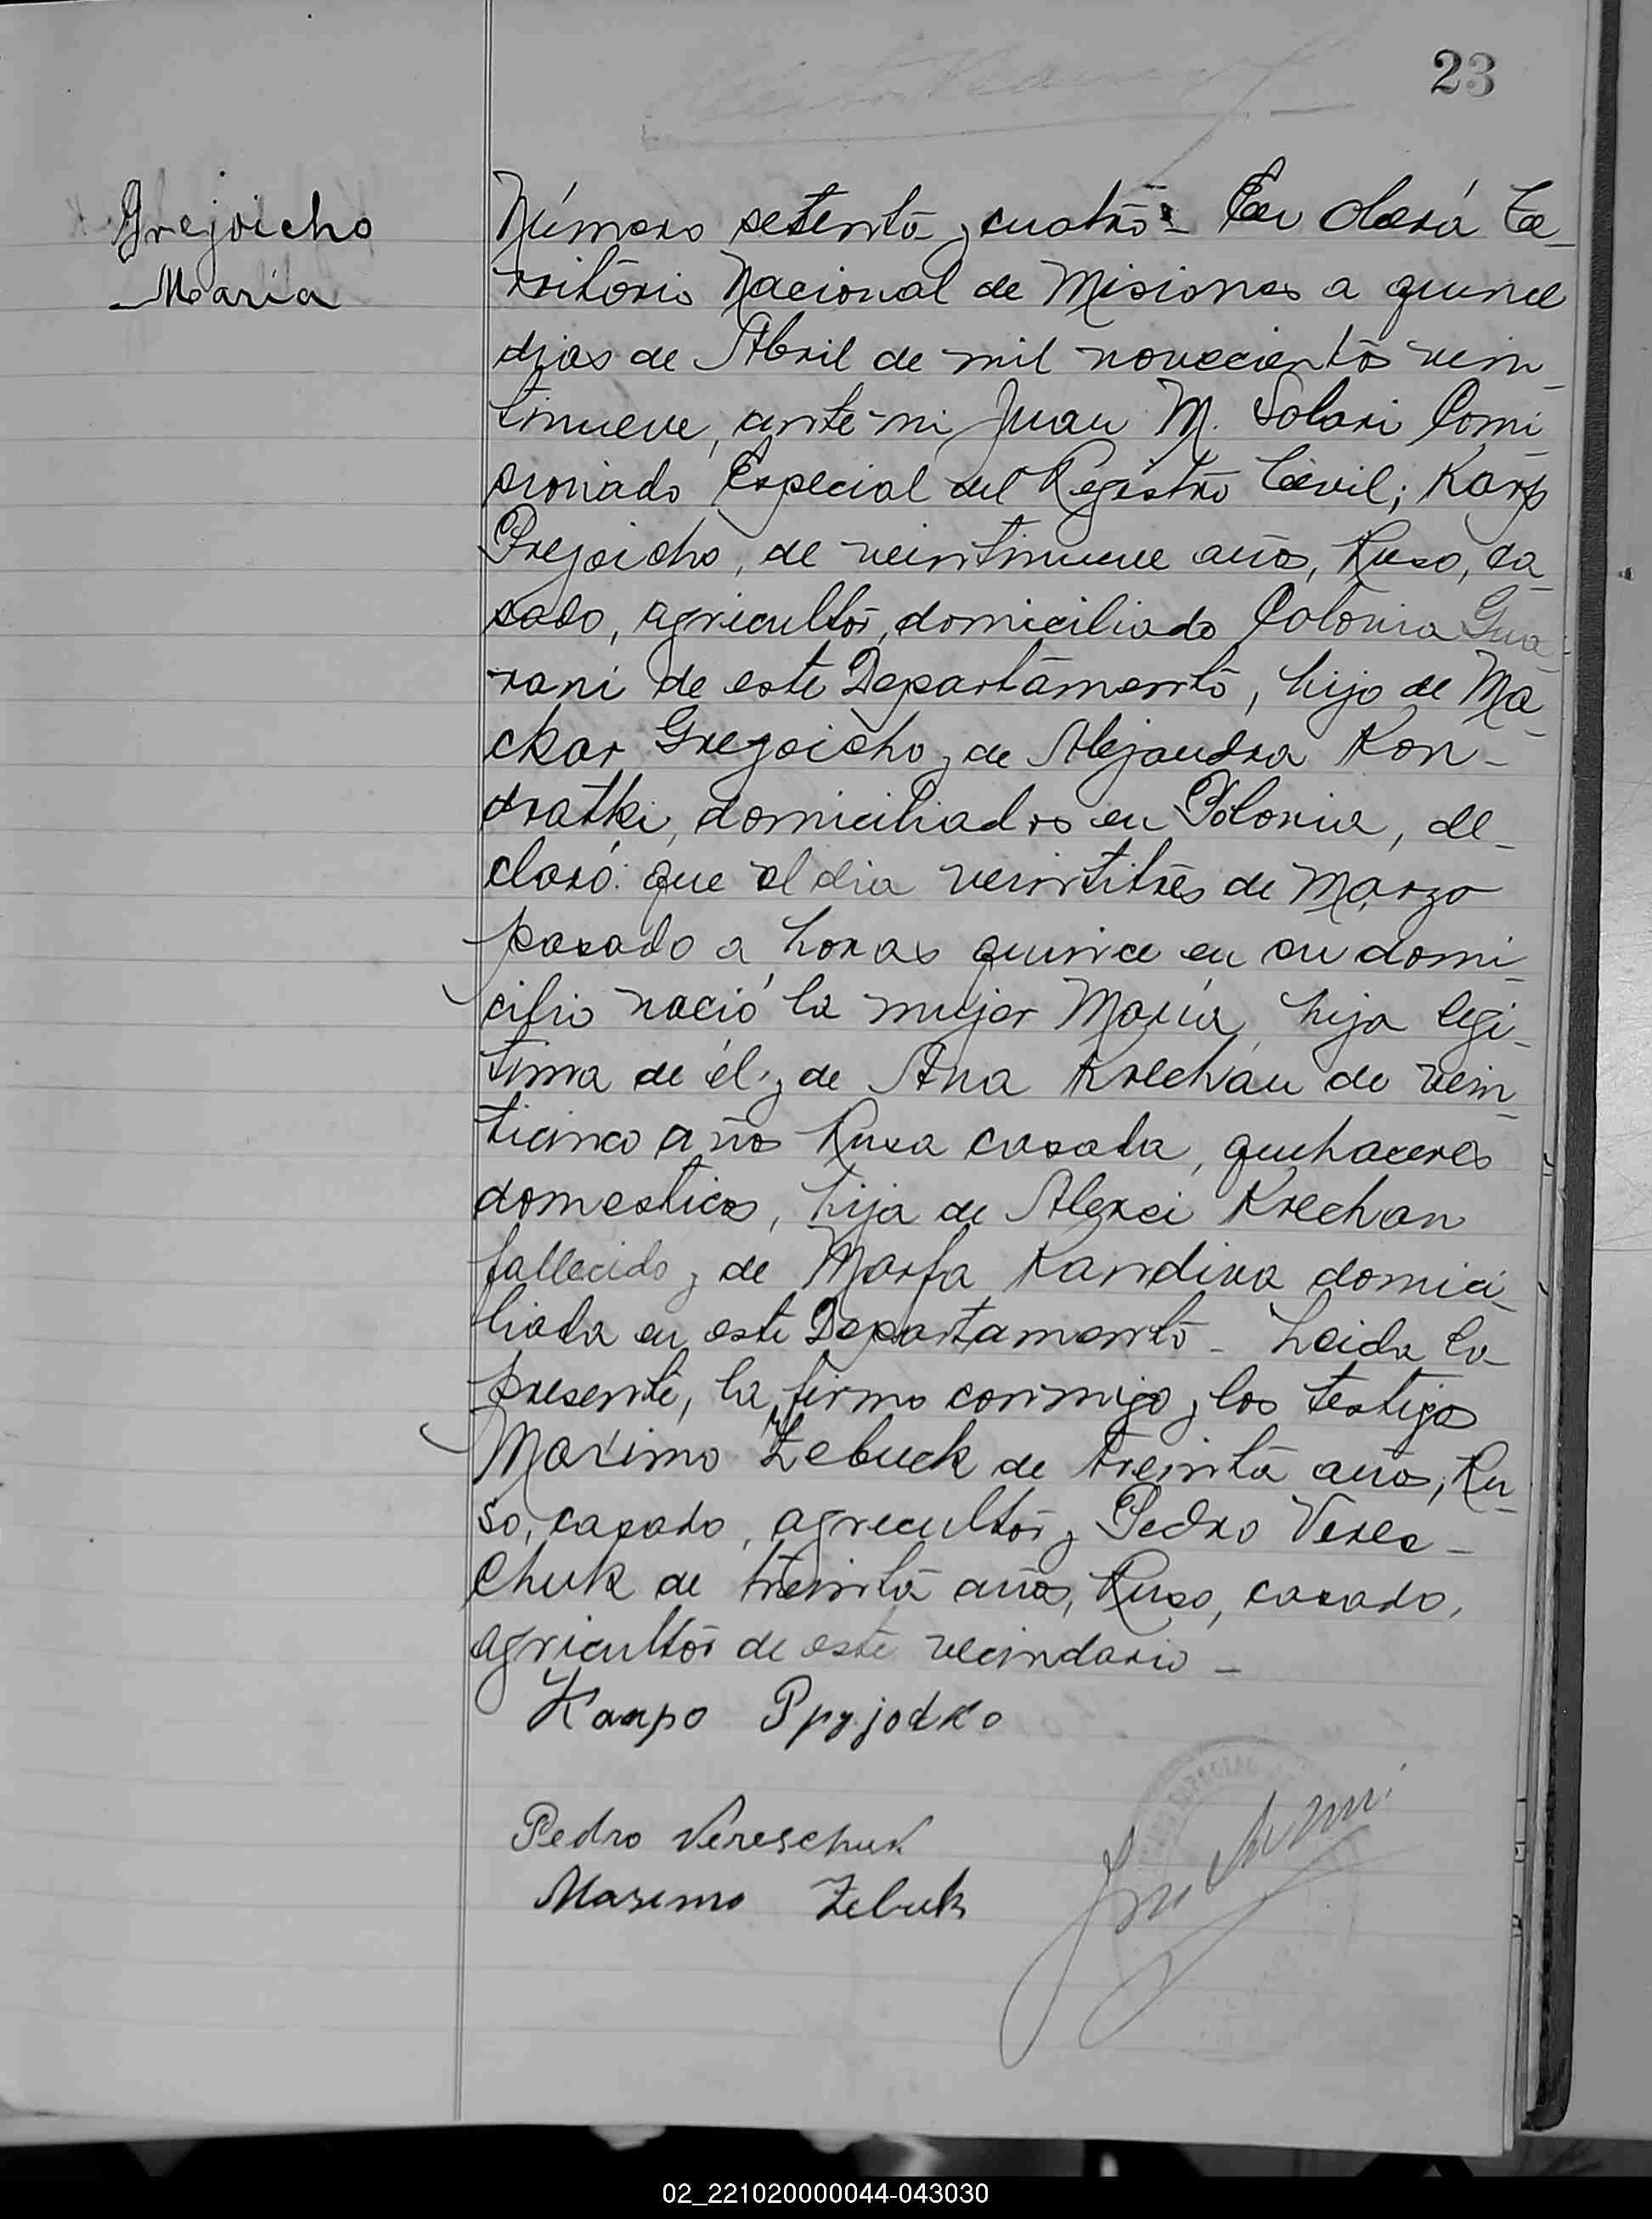 23
Grejoicho
María
Número setenta y cuatro - En Oberá Te-
rritorio Nacional de Misiones a quince
dias de Abril de mil novecientos vein-
tinueve, ante mi Juan M. Solari Comi
sionado Especial del Registro Civil; Karp
Gregoicho, de veintinueve años, Ruso, ca-
sado, agricultor, domiciliado Colonia Gua-
rani de este Departamento, hijo de Ma-
ckar Gregoicho y de Alejandra Kon-
dratki, domiciliados en Polonia, de-
claró: que el dia veintitrés de Marzo
pasado a horas quince en su domi-
cilio nació la mujer María, hija legi-
tima de él y de Ana Krechan de vein-
ticinco años Rusa casada, quehaceres
domesticos, hija de Alexei Krechan
fallecido y de Marfa Kandira domici-
liada en este Departamento - Leida la
presente, la firmo conmigo y los testigos
Maximo Zebuck de treinta años, Ru-
so, casado, agricultor y Pedro Veres-
chuk de treinta años, Ruso, casado,
agricultor de este vecindario -
Карпо
Pedro Vereschuk
Maximo Zebuk
02_221020000044-043030